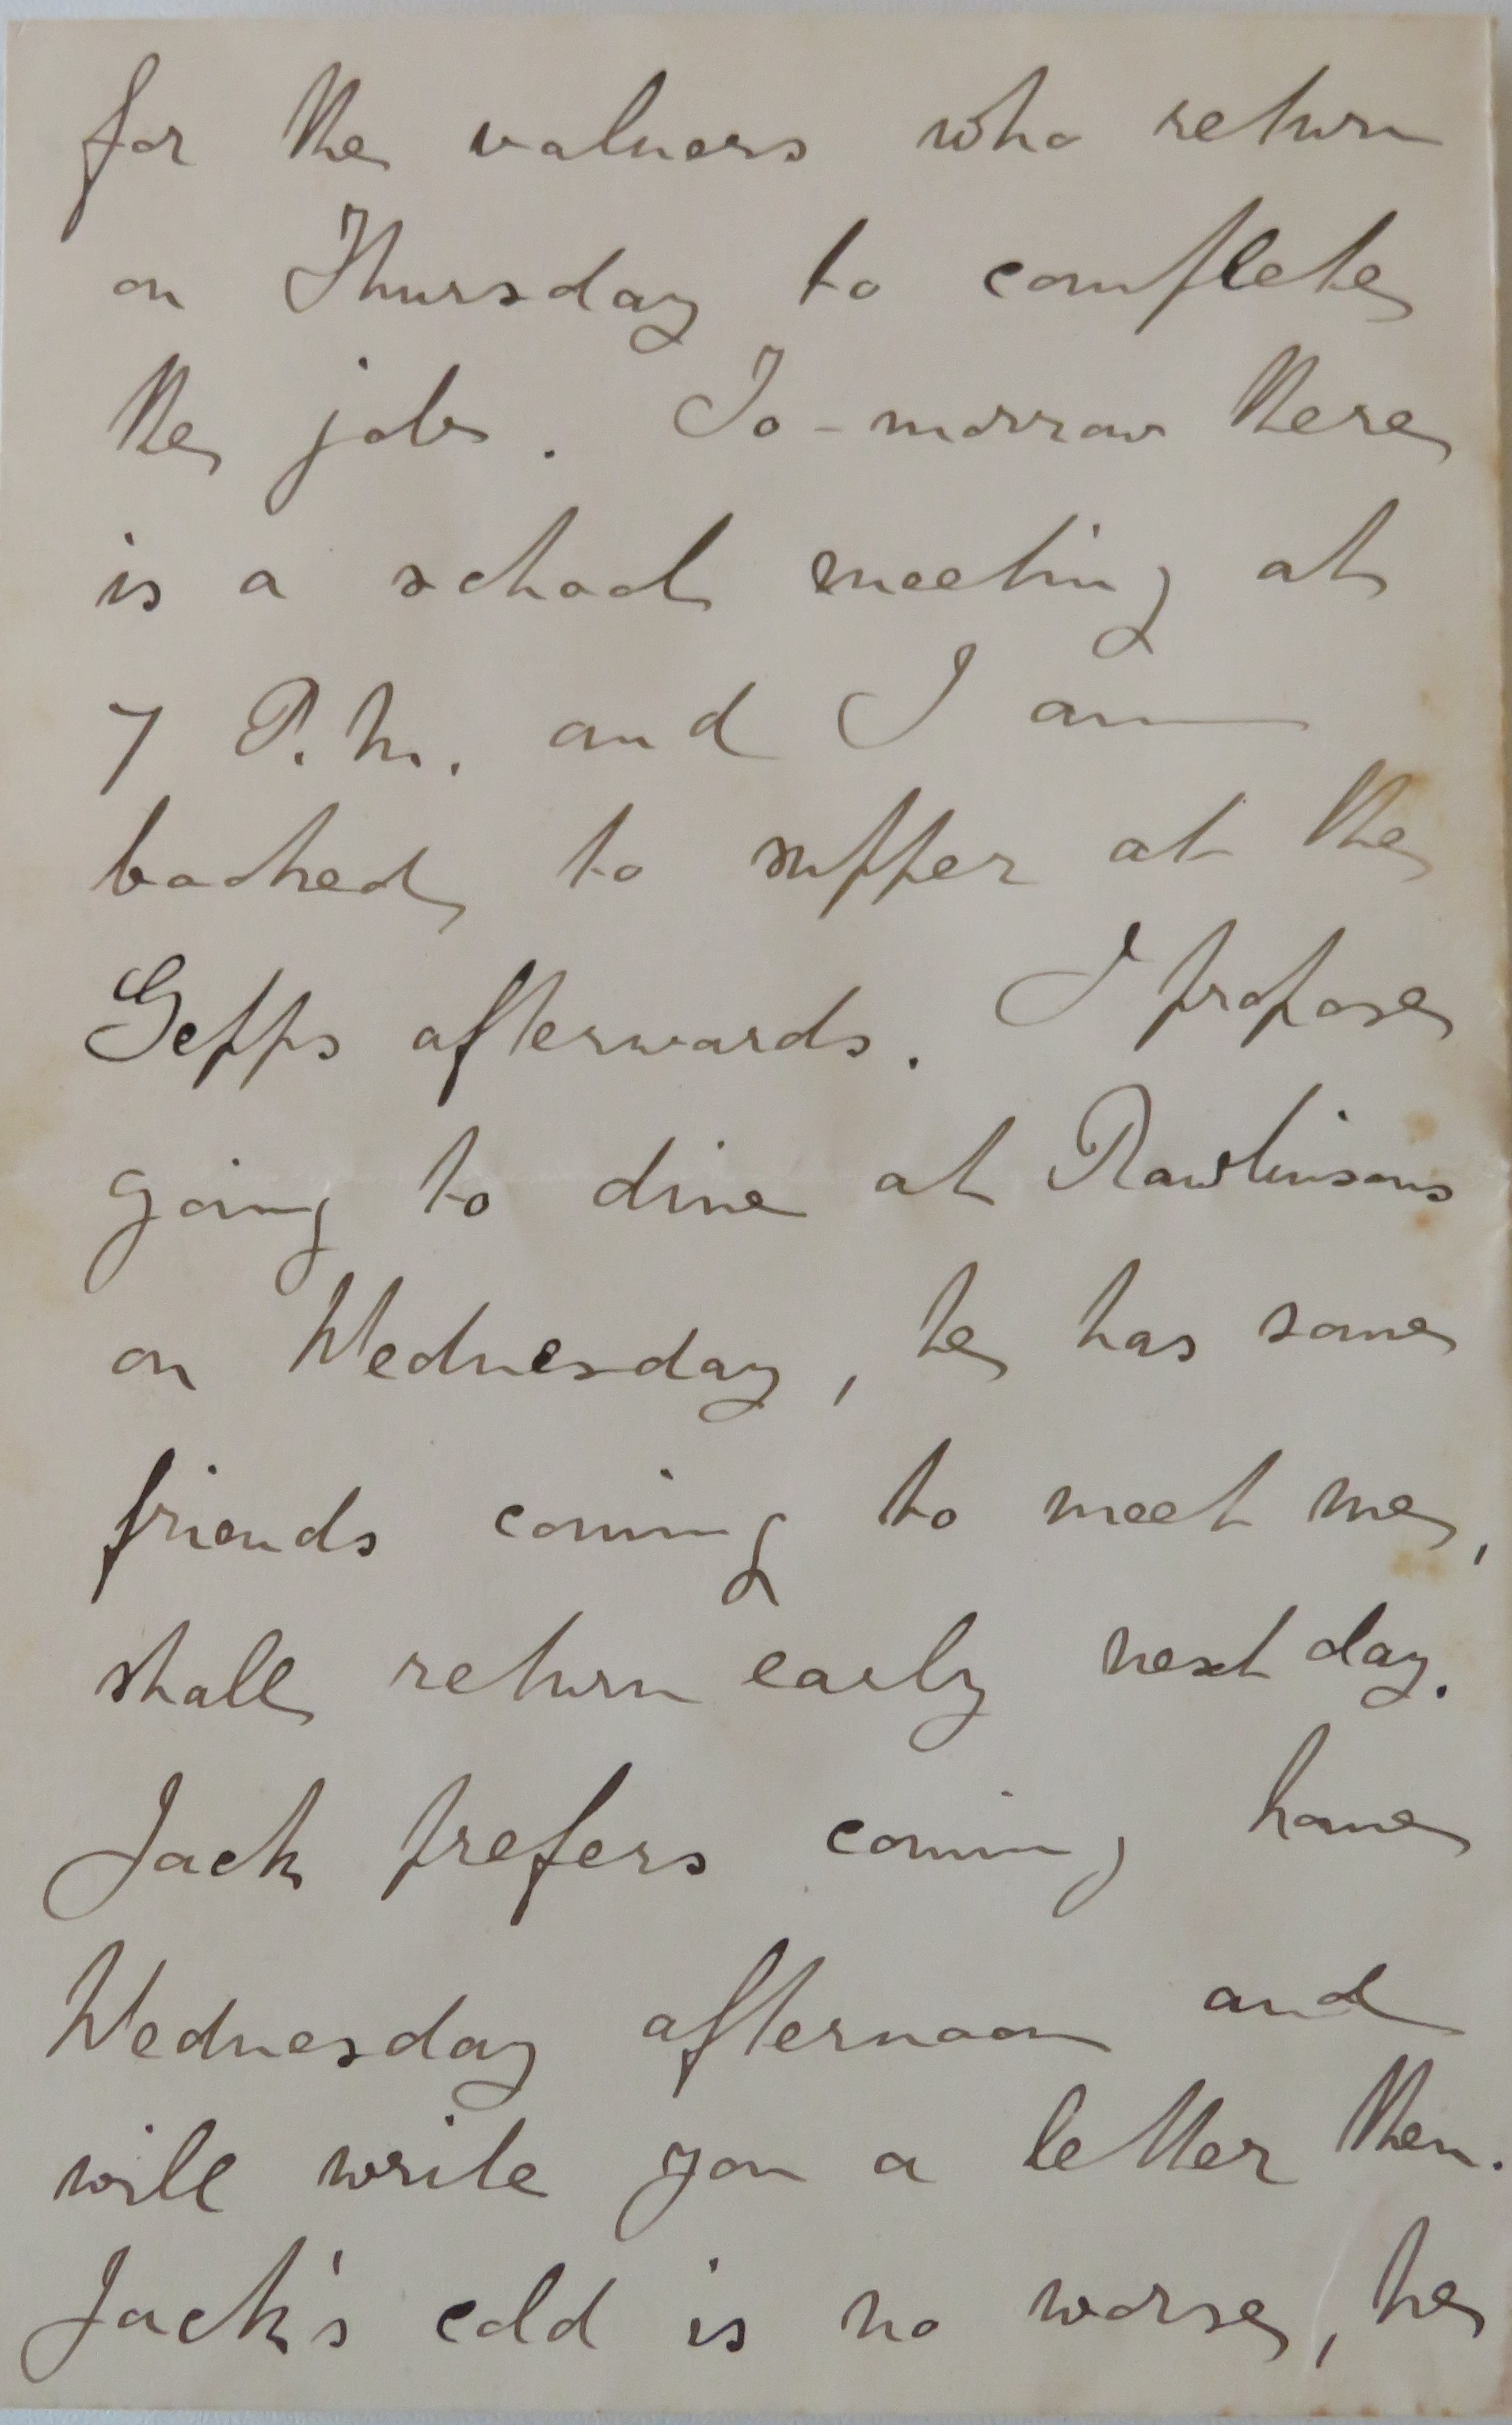 for the valuers who return
on Thursday to complete
the job. To-morrow there
is a school meeting at
7 P.M. and I am
booked to supper at the
Gepps afterwards. I propose
going to dine at Rawlinsons
on Wednesday, he has some
friends coming to meet me,
shall return early next day.
Jack prefers coming home
Wednesday afternoon and
will write you a letter then.
Jack's cold is no worse, he